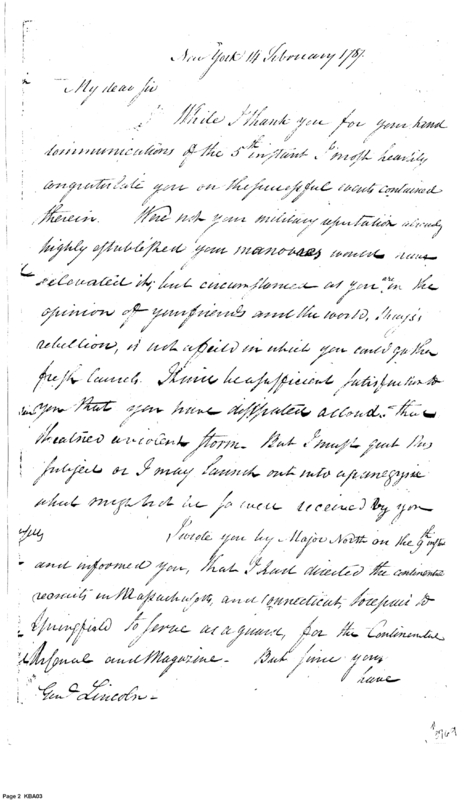 New York 14 February 1787.
My dear Sir
While I thank you for your kind
communications of the 5th instant I most heartily
congratulate you on the successful events contained
therein. Were not your military reputation already
highly established your manovres would have
elevated it; but circumstanced as you are in the
opinion of your friends and the world,
rebellion, is not a field in which you could gather
fresh laurels. It must be a sufficient satisfaction to
you that you have dissipated a cloud that
theatned a violent storm. But I must quit this
subject or I may launch out into a panegyric
which might not be so well received by you
I wrote you by Major North on the 9th inst
and informed you, that I had directed the continental
recruits in Massachusetts, and Connecticut, to repair to
Springfield to serve as a guard, for the Continental
Arsenal and Magazine. But since you
have
Genl Lincoln.
Page 2 KBA03